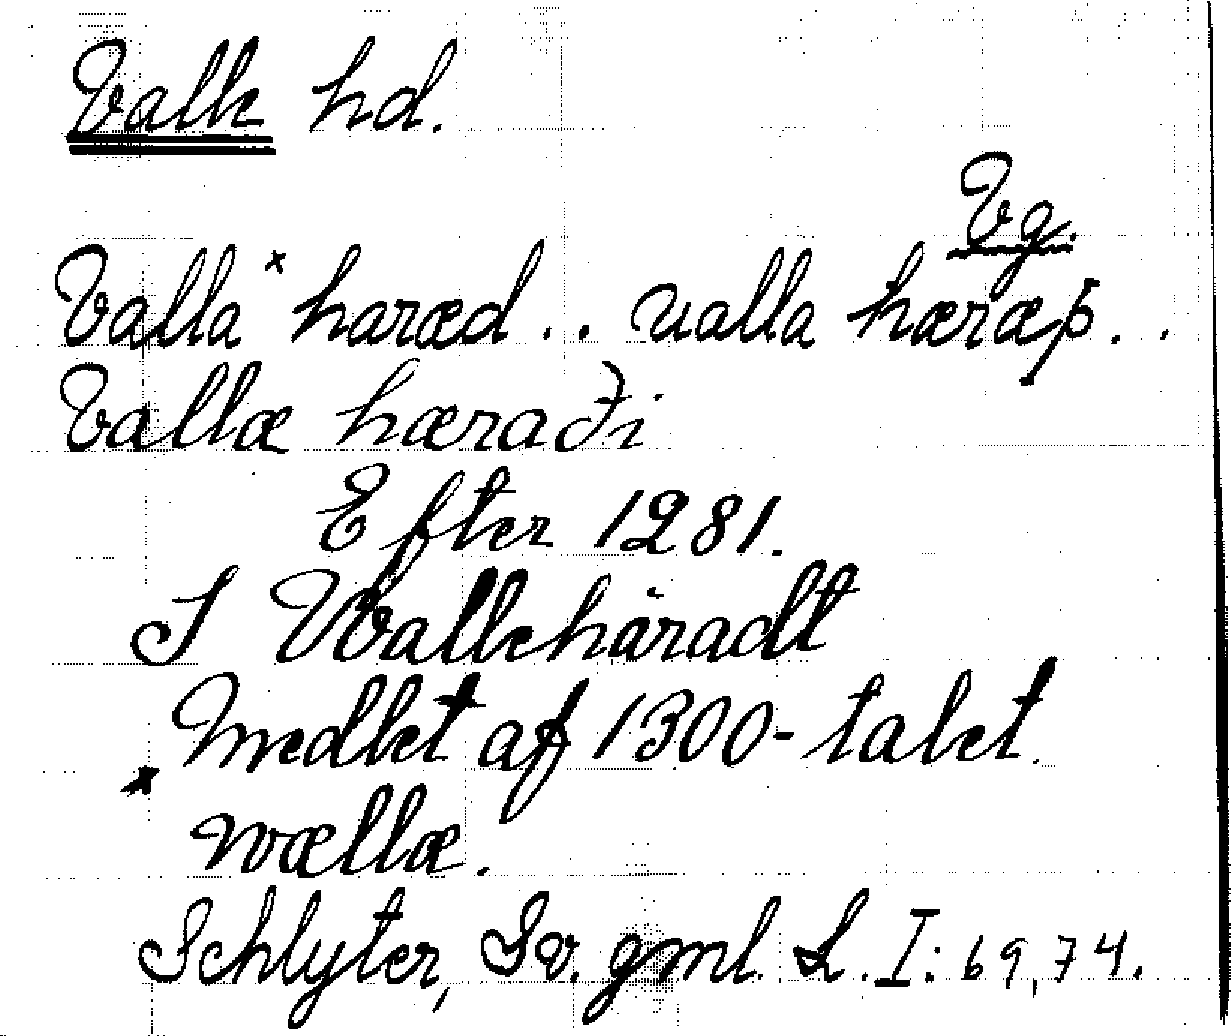 Valle hd.
Vg.
Valla x haræd .. ualla hæræþ ..
Vallæ hæraði
Efter 1281.
I Wallehäradt
Medlet af 1300-talet.
x
wællæ.
Schlyter, Sv. gml. L. I: 69, 74.